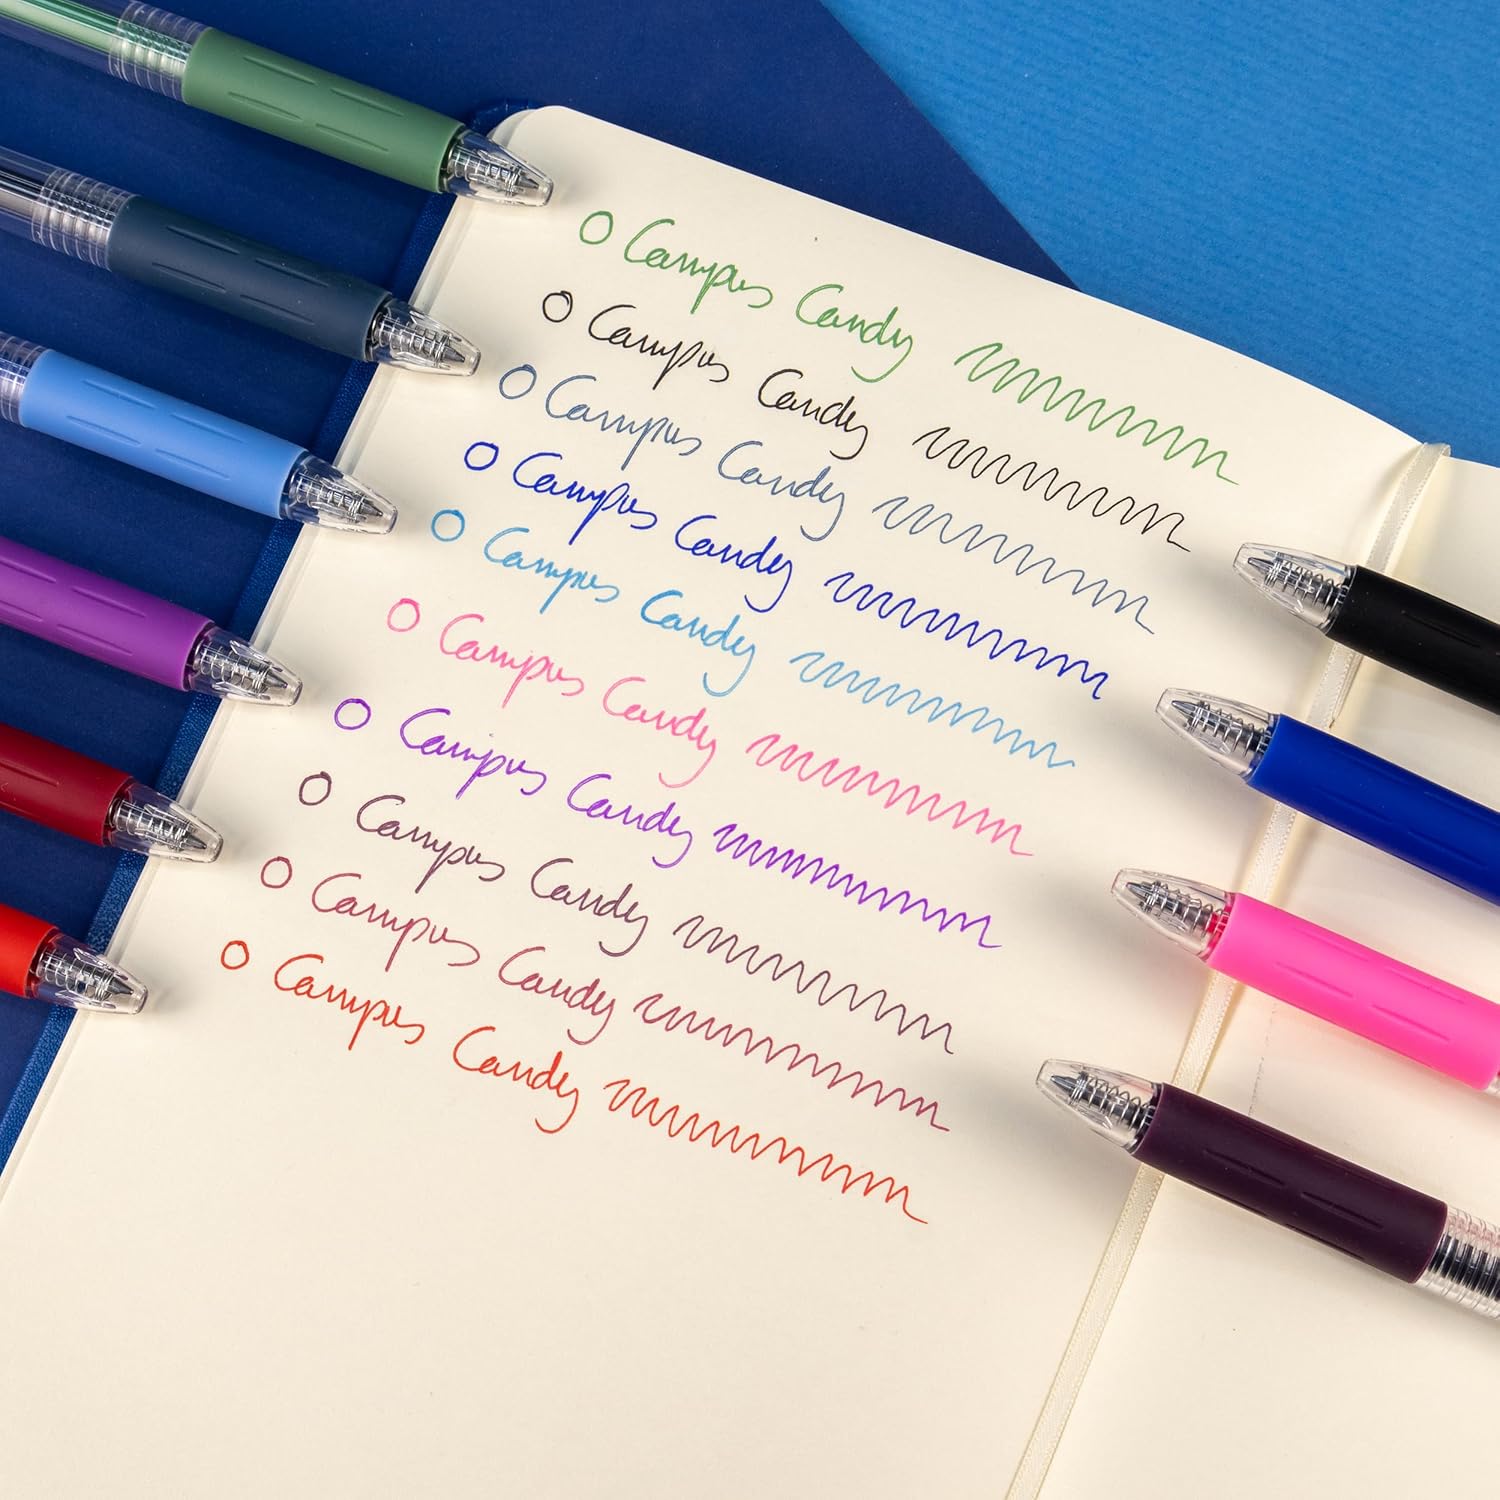 Campus Candy
Campus Candy
Campus Candy
Campus Candy
Campus Candy
Campus Candy
Campus Candy
Campus Candy
Campus Candy
Campus Candy